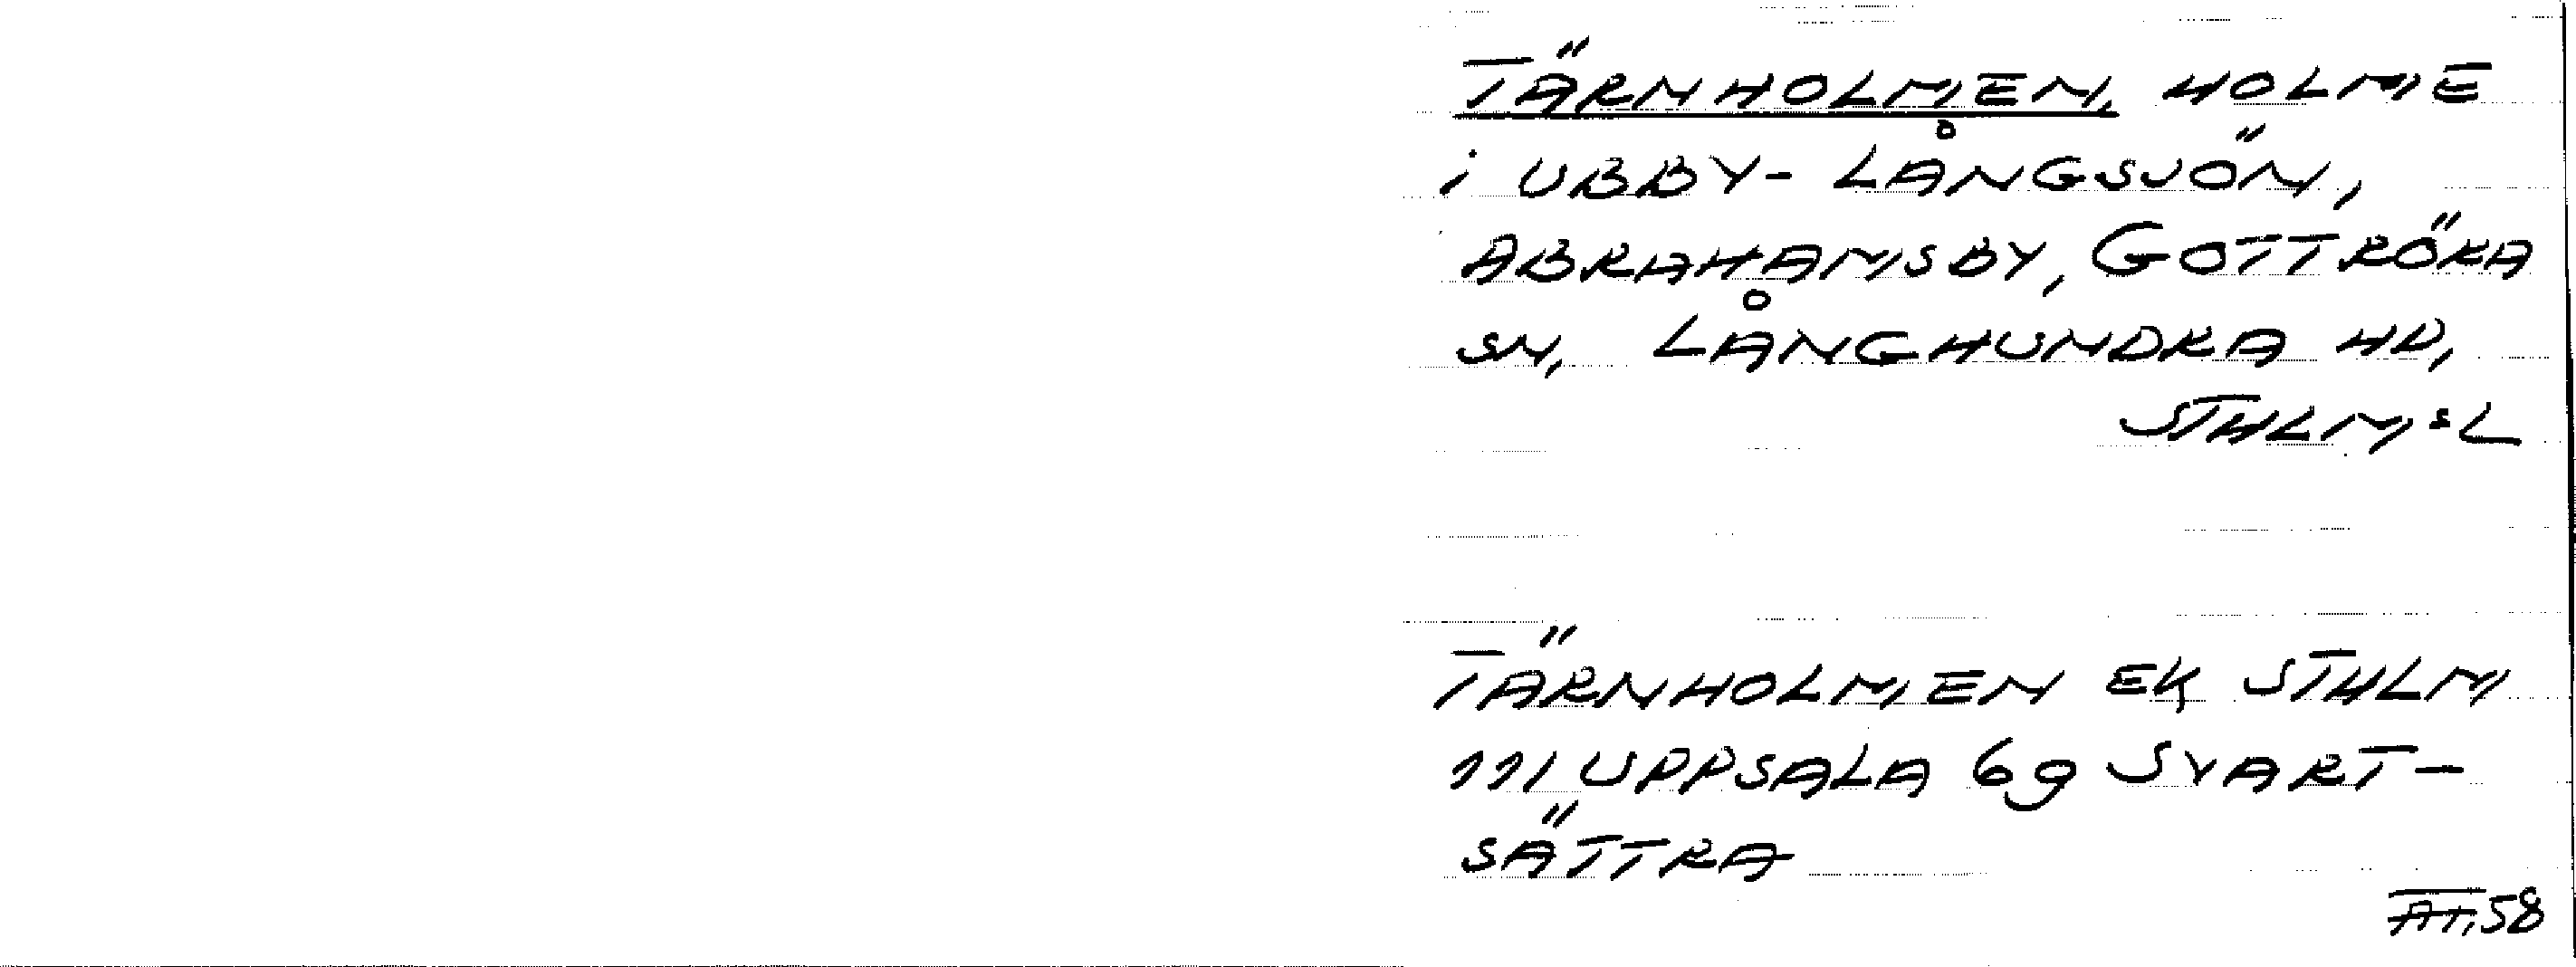 TÄRNHOLMEN, HOLME
i UBBY-LÅNGSJÖN,
ABRAHAMSBY, GOTTRÖRA
SN, LÅNGHUNDRA HD,
STHLM:L
TÄRNHOLMEN EK STHLM
111 UPPSALA 69 SVART-
SÄTTRA
58